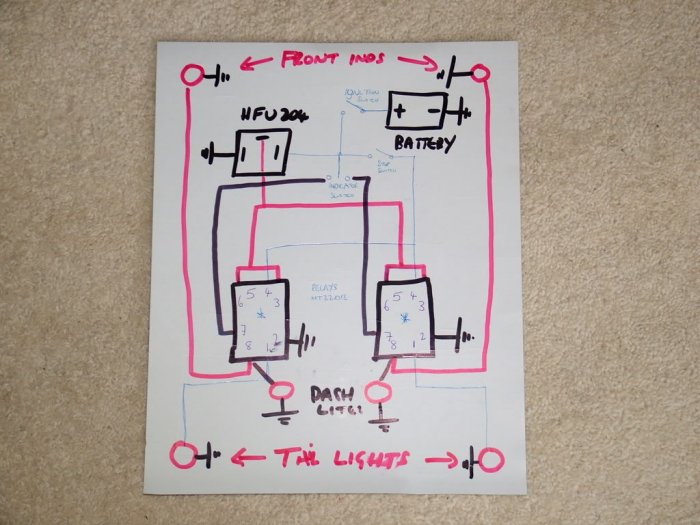 FRONT INDS
IGNITION
SWITCH
HFU204
+ -
BATTERY
STOP
SWITCH
INDICATOR
SWITCH
5 4
6 3
*
7
8 1 2
RELAYS
5 4
6 3
*
7
8 1 2
DASH
TAIL LIGHTS